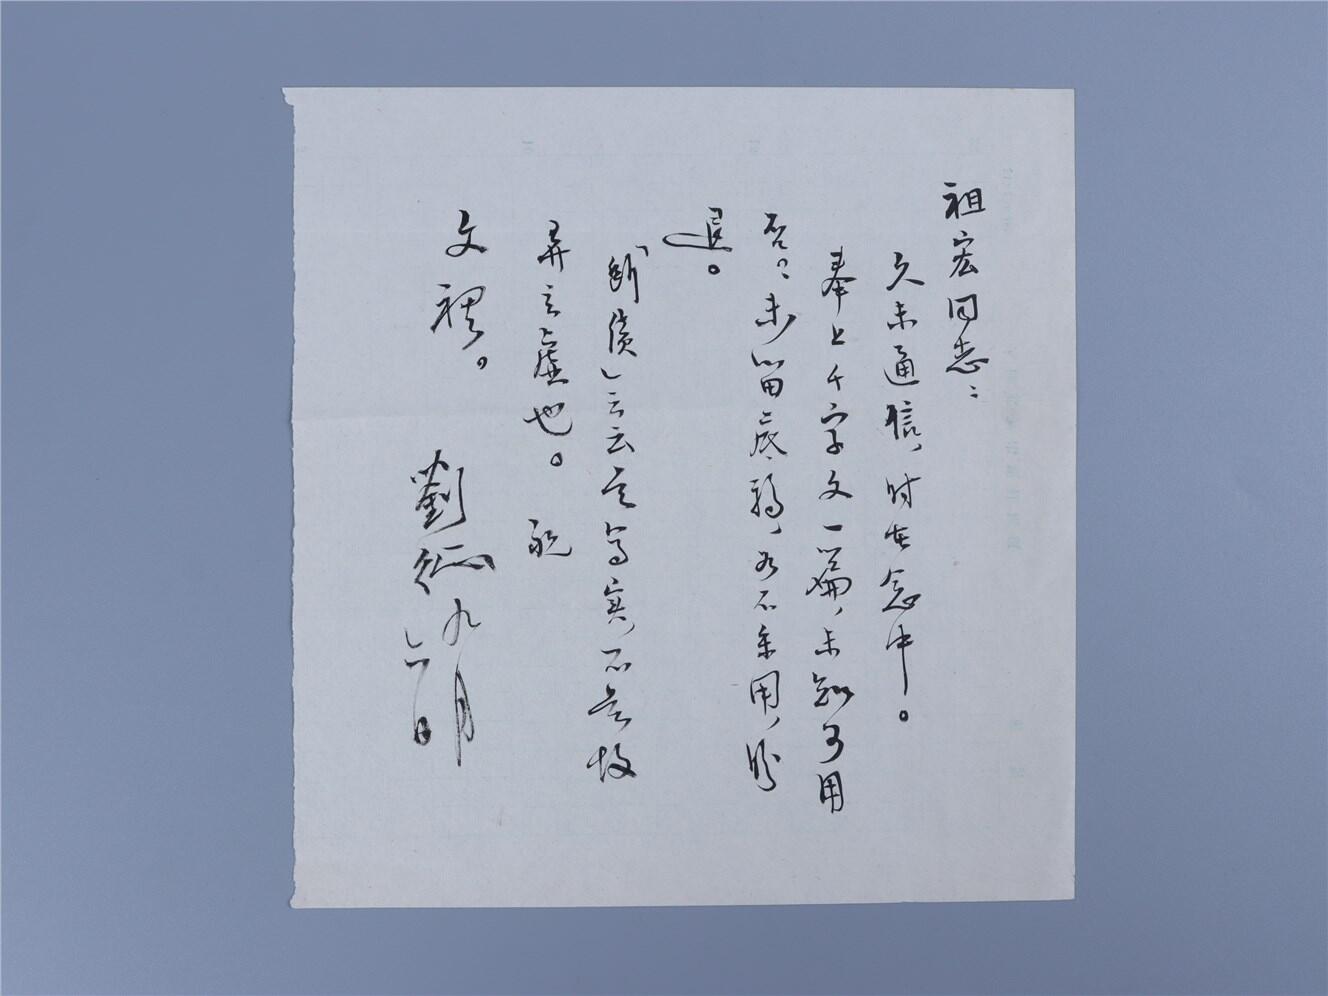 祖宏同志：
久未通信，时在念中。
奉上千字文一篇，未知可用
否？未留底稿，如不采用，盼
退。
「断债」云云是写实，不是故
弄玄虚也。祝
文祺。
劉征九月
六日